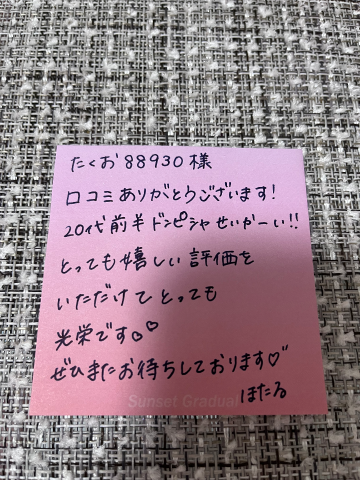 たくお88930様
口コミありがとうございます!
20代前半ドンピシャせいかーい!!
とっても嬉しい評価を
いただけてとっても
光栄です。♡
ぜひまたお待ちしております♡
ほたる
Sunset Gradual